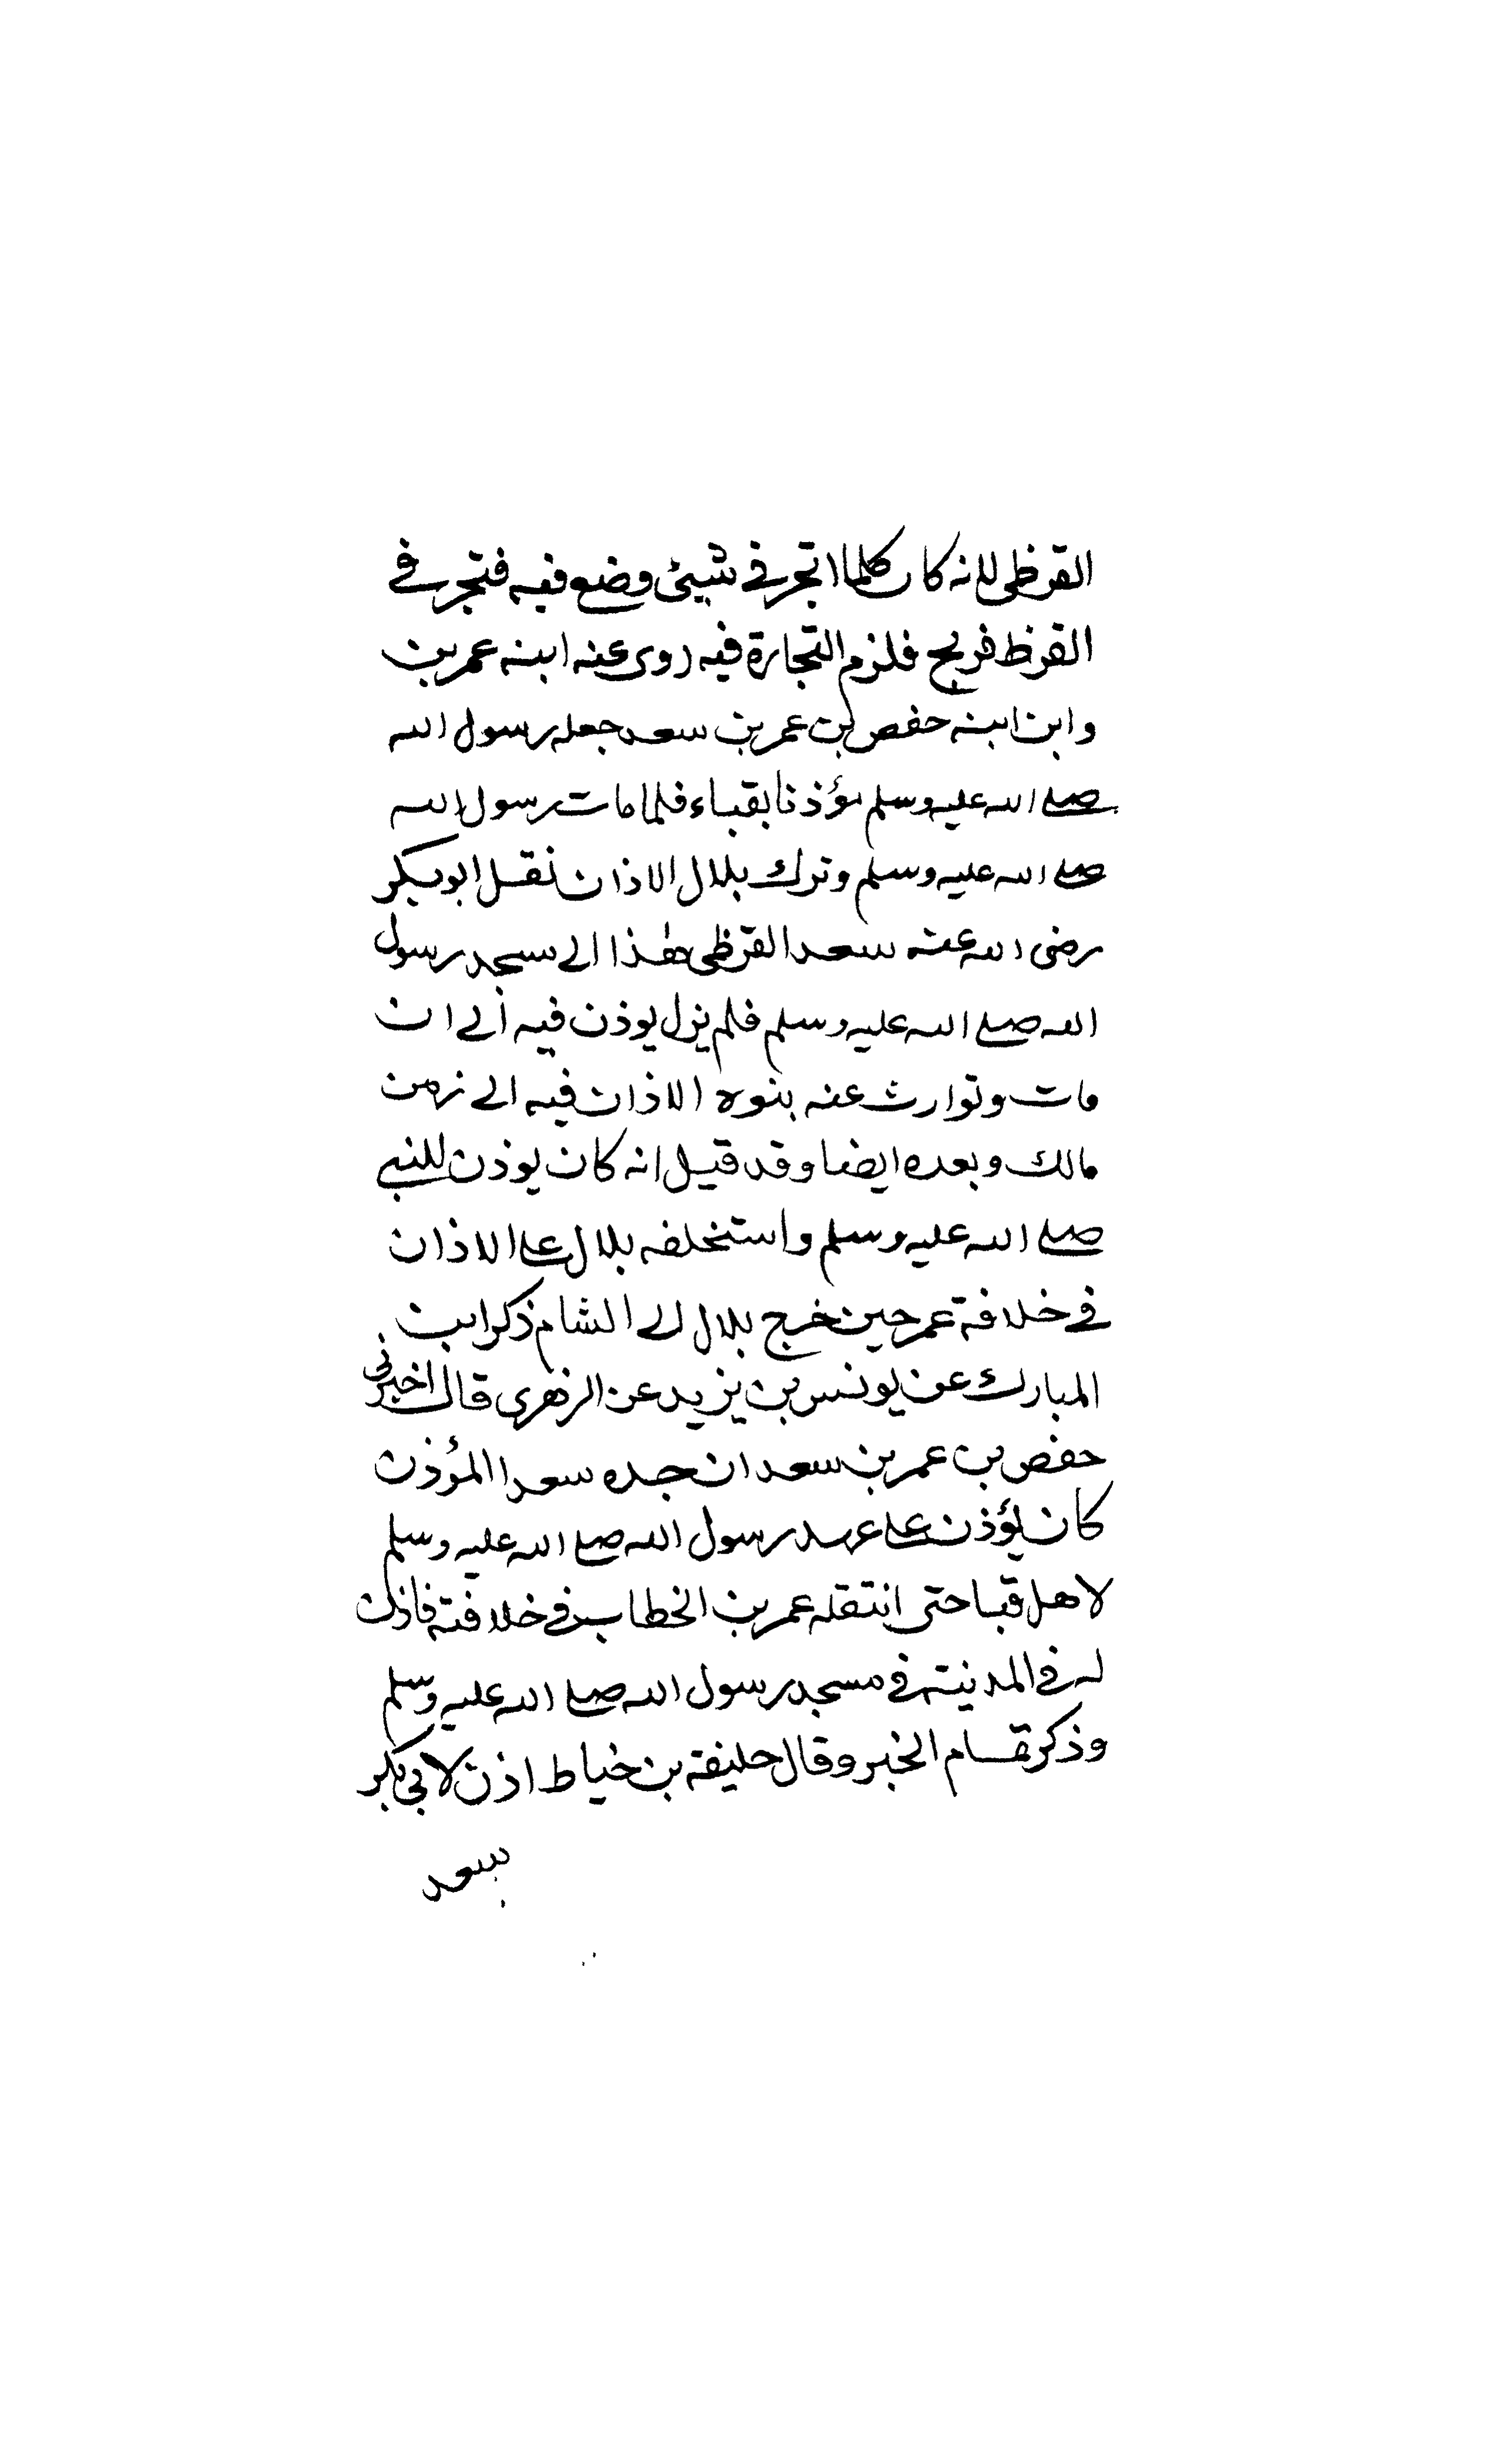 القرظى لانه كان كلما اتجر في شيئ وضع فيه فتجر في
القرظ فربح فلزم التجارة فيه روى عنه ابنه عمر بن
وابن ابنه حفص بن عمر بن سعد جعله رسول الله
صلى الله عليه وسلم مؤذنا بقباء فلما مات رسول الله
صلى الله عليه وسلم وترك بلال الاذان نقل ابو بكر
رضى الله عنه سعد القرظى هذا الى مسجد رسول
الله صلى الله عليه وسلم فلم يزل يوذن فيه الى ان
مات وتوارث عنه بنوه الاذان فيه الى زمن
مالك وبعده ايضا وقد قيل انه كان يوذن للنبي
صلى الله عليه وسلم واستخلفه بلال على الاذان
في خلافة عمر حين خرج بلال الى الشام ذكر ابن
المبارك عن يونس بن يزيد عن الزهرى قال اخبرني
حفص بن عمر بن سعد ان جده سعدا المؤذن
كان يؤذن على عهد رسول الله صلى الله عليه وسلم
لاهل قبا حتى انتقله عمر بن الخطاب في خلافته فاذن
له في المدينة في مسجد رسول الله صلى الله عليه وسلم
وذكر تمام الخبر وقال خليفة بن خياط اذن لابي بكر
سعد